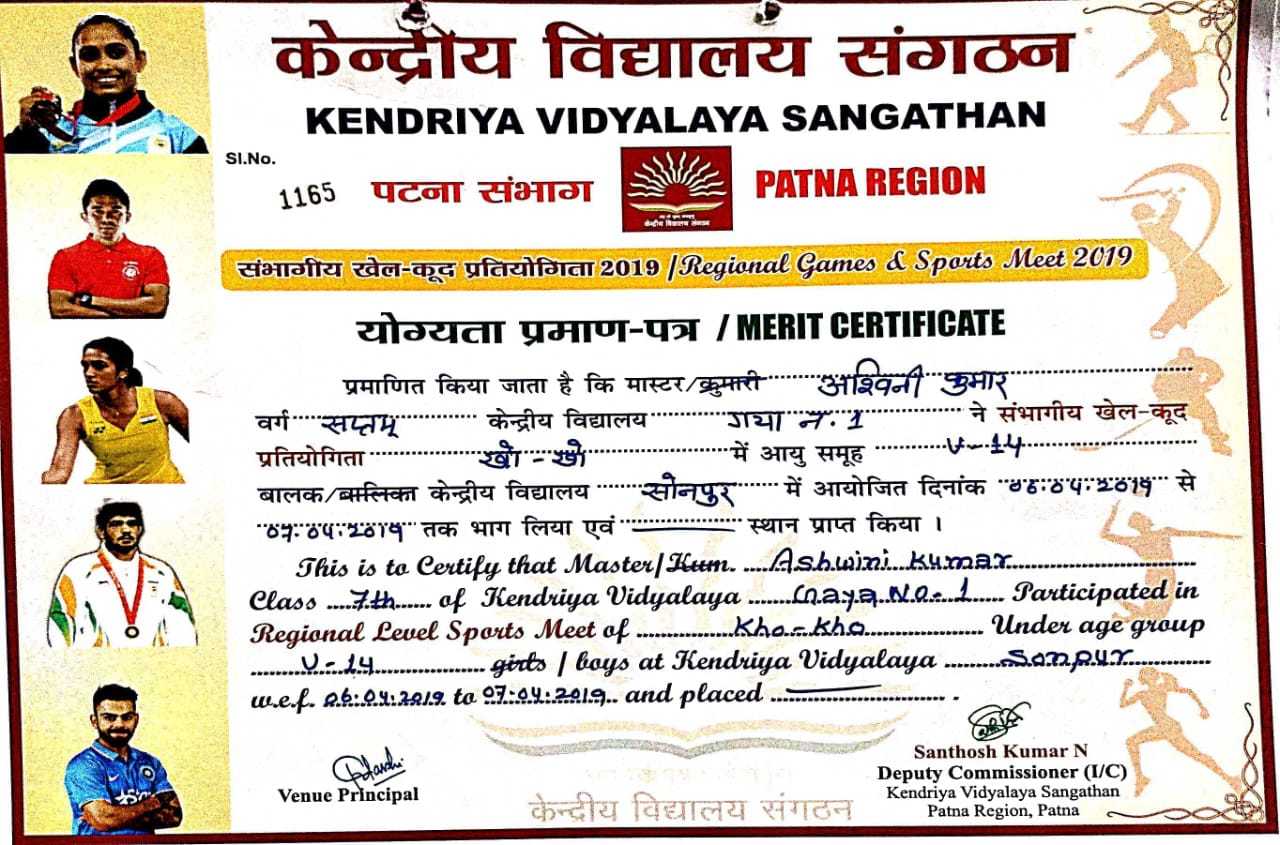 केन्द्रीय विद्यालय संगठन
KENDRIYA VIDYALAYA SANGATHAN
Sl.No.
1165 पटना संभाग PATNA REGION
केन्द्रीय विद्यालय संगठन
संभागीय खेल-कूद प्रतियोगिता 2019 /Regional Games & Sports Meet 2019
योग्यता प्रमाण-पत्र / MERIT CERTIFICATE
प्रमाणित किया जाता है कि मास्टर/कुमारी अश्विनी कुमार
वर्ग सप्तम् केन्द्रीय विद्यालय गया न.1 ने संभागीय खेल-कूद
प्रतियोगिता खो-खो में आयु समूह U-14
बालक/बालिका केन्द्रीय विद्यालय सोनपुर में आयोजित दिनांक 06.04.2019 से
07.04.2019 तक भाग लिया एवं स्थान प्राप्त किया ।
This is to Certify that Master/Kum. Ashwini Kumar
Class 7th of Kendriya Vidyalaya Gaya No-1 Participated in
Regional Level Sports Meet of Kho-Kho Under age group
U-14 girls / boys at Kendriya Vidyalaya Sonpur
w.e.f. 06.04.2019 to 07.04.2019 and placed .
Venue Principal
Santhosh Kumar N
Deputy Commissioner (I/C)
Kendriya Vidyalaya Sangathan
Patna Region, Patna
केन्द्रीय विद्यालय संगठन